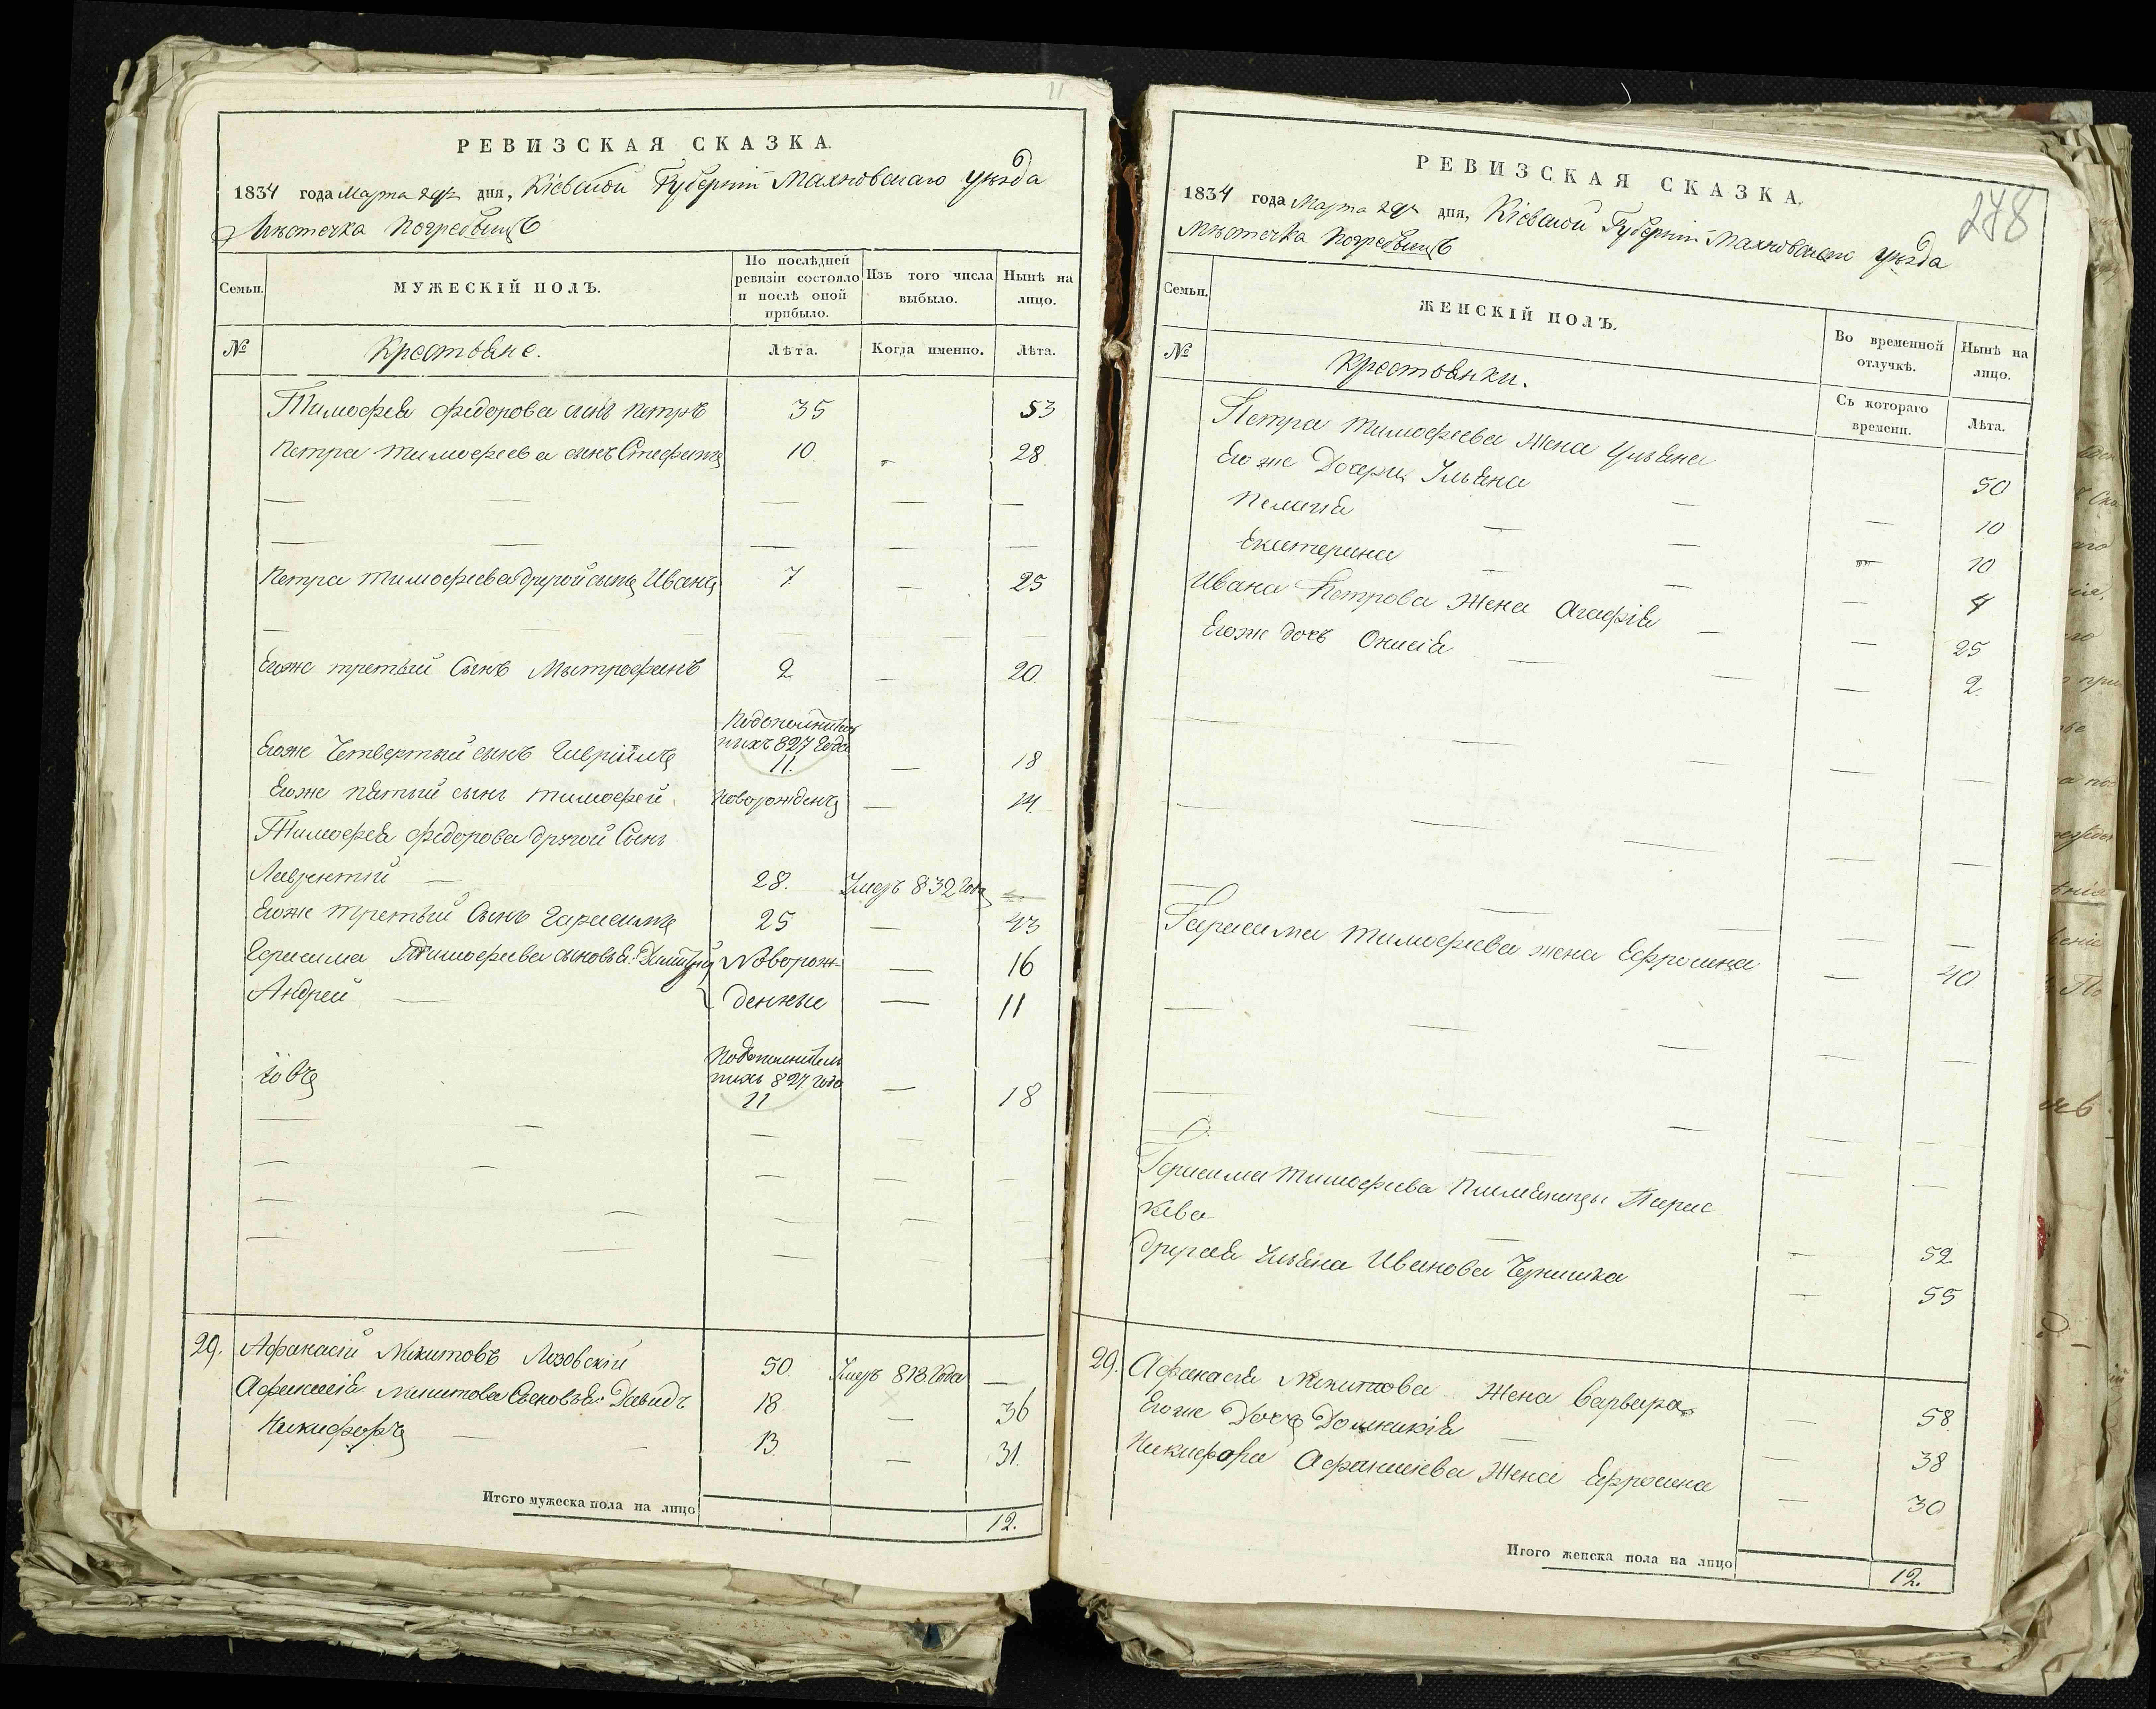 11
РЕВИЗСКАЯ СКАЗКА.
1834 года Марта дня, Кіевской Губерніи Махновскаго уѣзда
Мѣстечка Погребищъ
Семьи. МУЖЕСКІЙ ПОЛЪ. По послѣдней ревизіи состояло и послѣ оной прибыло. Изъ того числа выбыло. Нынѣ на лицо.
№ Крестьяне. Лѣта. Когда именно. Лѣта.
Тимофея Федорова сынъ Петръ 35 53
Петра Тимофеева сынъ Стефанъ 10. 28
Петра Тимофеева другой сынъ Иванъ 7 25
Егоже третьий Сынъ Мытрофанъ 2 20
Егоже Четвертый сынъ Гаврійлъ Пополнительныхъ 827 Года 11. 18
Егоже пятый сынъ Тимофей Новорожденъ 14
Тимофея Федорова другой Сынъ
Лаврентій 28. Умеръ 832 Года
Егоже третьий Сынъ Гарасимъ 25 43
Герасима Тимофеева сыновья: Димитрій Новорож- 16
Андрей денные 11
Іовъ 827 года 11 18
29. Афанасій Микитовъ Лозовскій 50. Умеръ 813 Года
Афанасія Микитова Сыновья: Давидъ 18 36
Никифоръ 13 31.
Итого мужеска пола на лицо 12.
278
РЕВИЗСКАЯ СКАЗКА.
1834 года Марта дня, Кіевской Губерніи Махновскаго уѣзда
Мѣстечка Погребищъ
Семьи. ЖЕНСКІЙ ПОЛЪ. Во временной отлучкѣ. Нынѣ на лицо.
№ Крестьянки. Съ котораго времени. Лѣта.
Петра Тимофеева Жена Ульяна 50
Его же Дочери Ульяна 10
Пелагія 10
Екатерина 4
Ивана Петрова Жена Агафія 25
Егоже дочь Онисія 2.
Гарасима Тимофеева жена Ефросина 40
Герасима Тимофеева Племяницы Парас
кева 52
другая Ульяна Иванова 55
29. Афанасія Микитова Жена Варвара 58
Егоже Дочъ Домникія 38
Никифора Афанасіева Жена Ефросина 30
Итого женска пола на лицо 12.